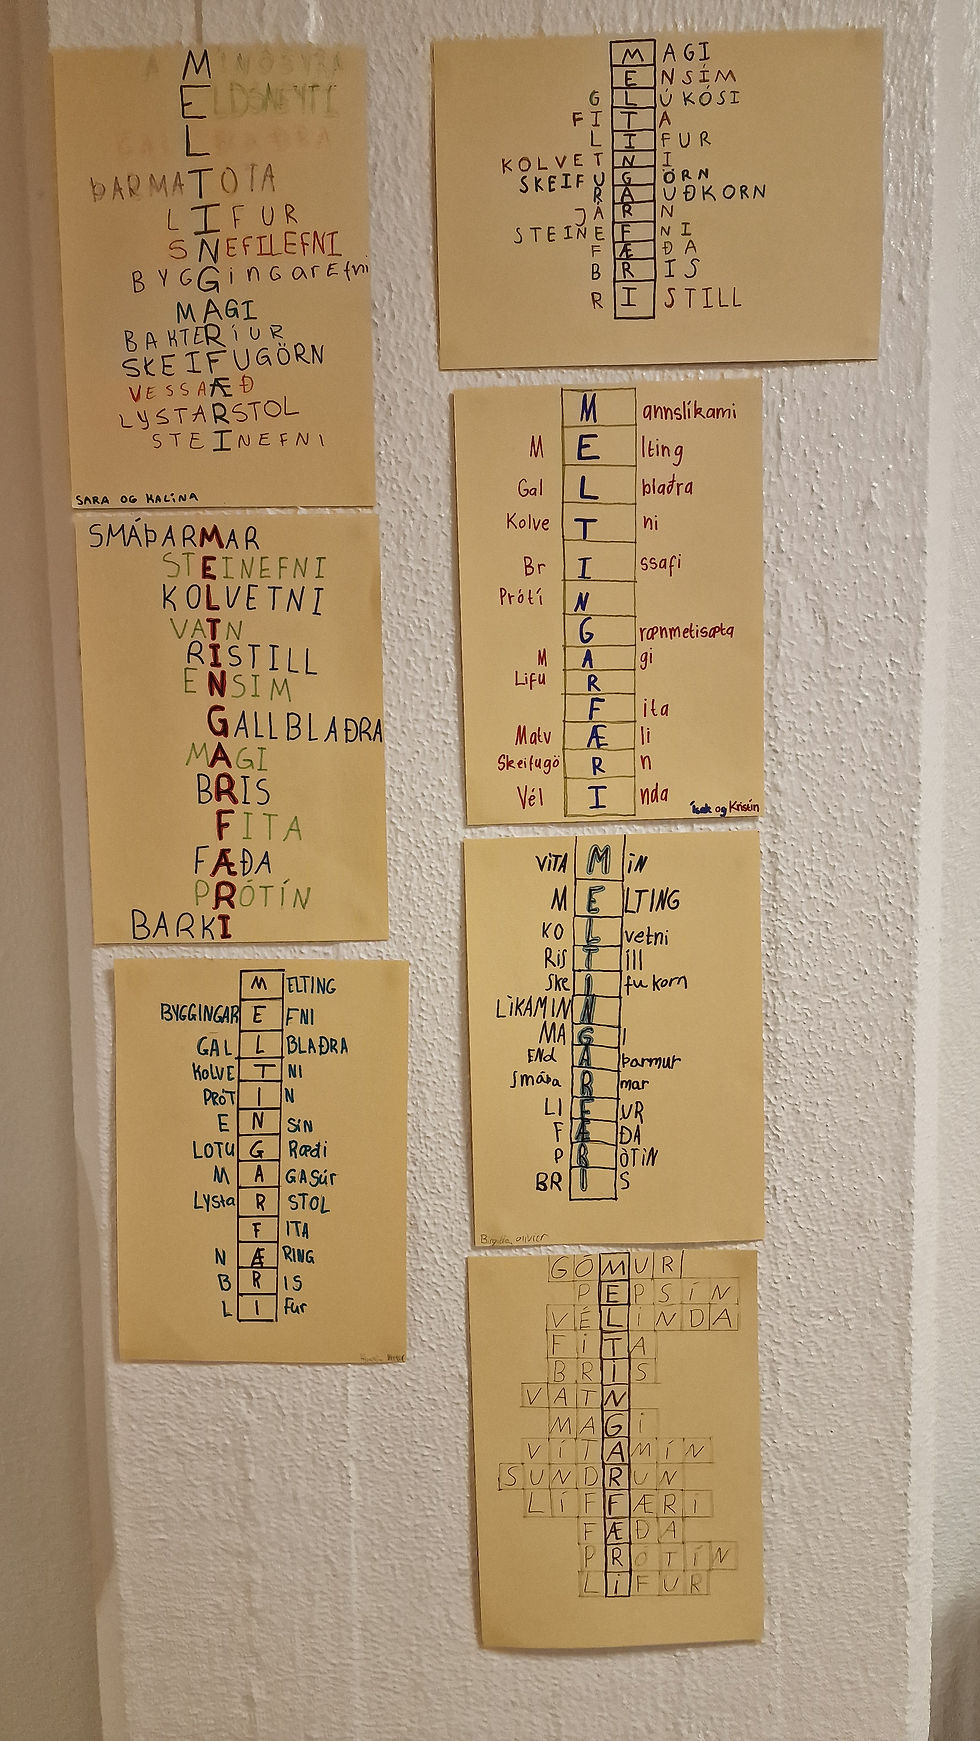 AMÍNÓSÝRA
ELDSNEYTI
GALLBLAÐRA
ÞARMATOTA
LIFUR
SNEFILEFNI
BYGGingarEfni
MAGI
BAKTERÍUR
SKEIFUGÖRN
VESSAÆÐ
LYSTARSTOL
STEINEFNI
SARA OG KALINA
MAGI
ENSÍM
GLÚKÓSI
FITA
LIFUR
KOLVETNI
SKEIFUGÖRN
RAUÐKORN
JÁRN
STEINEFNI
FÆÐA
BRIS
RISTILL
SMÁÞARMAR
STEINEFNI
KOLVETNI
VATN
RISTILL
ENSIM
GALLBLAÐRA
MAGI
BRIS
FITA
FÆÐA
PRÓTÍN
BARKI
Mannslíkami
MElting
GalLblaðra
KolveTni
BrIssafi
PrótíN
Grænmetisæta
MAgi
LifuR
Fita
MatvÆli
SkeifugöRn
VélInda
Ísak og Kristín
MELTING
BYGGINGAREFNI
GALLBLAÐRA
KOLVETNI
PRÓTIN
ENSín
LOTUGRæði
MAGASúr
LYstaRSTOL
FITA
NÆRING
BRIS
LIfur
VITAMIN
MELTING
KOLvetni
RisTill
SkeIfukorn
LÍKAMINN
MAGI
ENdAþarmur
SmáþaRmar
LIFUR
FÆÐA
PRÓTiN
BRIS
Birgitta, olivier
GÓMUR
PEPSÍN
VÉLINDA
FITA
BRIS
VATN
MAGI
VÍTAMÍN
SUNDRUN
LÍFFÆRI
FÆÐA
PRÓTÍN
LIFUR